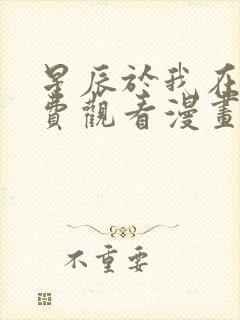 星辰於我在
費觀看漫畫
不重要